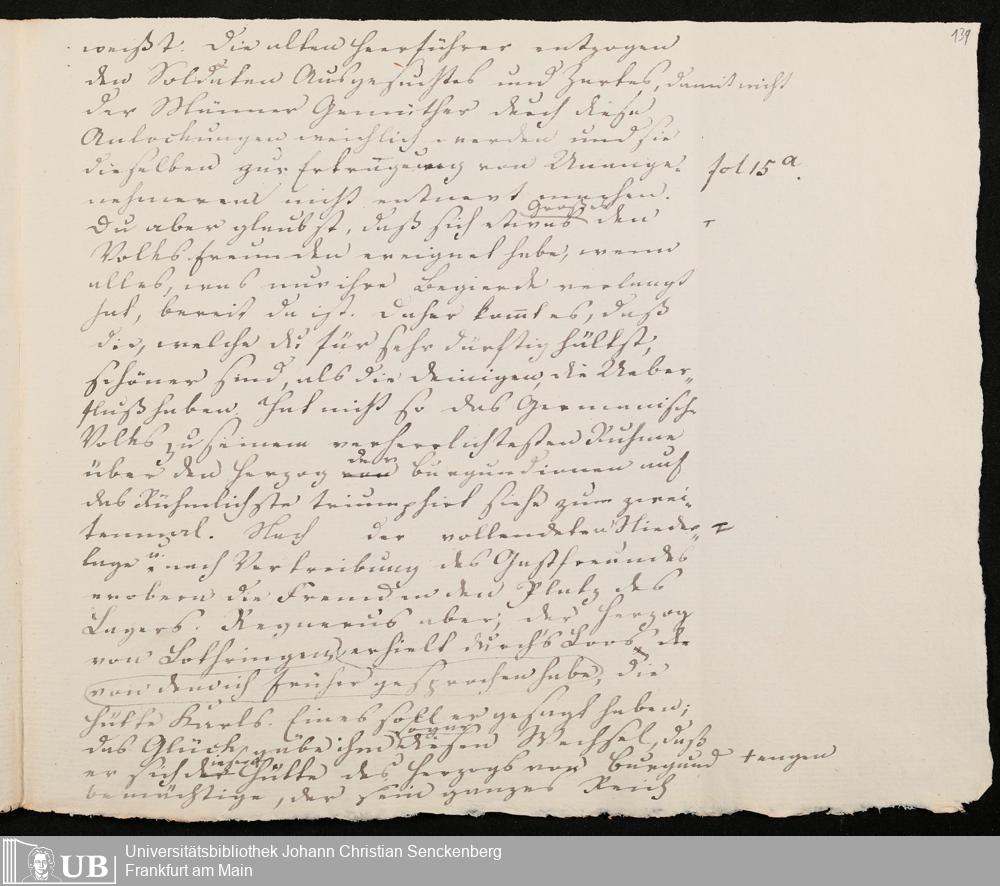 139
weißt. Die alten Heerführer entzogen
den Soldaten Ausgesuchtes und Zartes, damit nicht
der Männer Gemüther durch diese
Anlockungen weichlich werden und sie
dieselben zur Ertragung von Unange-
nehmeren nicht entnervt machen.
fol 15 a.
Du aber glaubst, daß sich etwas Großes den
Volksfreunden ereignet habe, wenn
alles, was nur ihre Begierde verlangt
hat, bereit da ist. Daher komt es, daß
die, welche du für sehr dürftig hältst,
schöner sind, als die deinigen, die Ueber-
fluß haben. Hat nicht so das Germanische
Volks zu seinem verherrlichtesten Ruhme
über den Herzog von der Burgundionen auf
das Rühmlichste triumphirt siehe zum zwei-
tenmal. Nach der vollendeten Nieder-
lage u. nach Vertreibung des Gastfreundes
erobern die Fremden den Platz des
Lagers. Regnerus aber, der Herzog
von Lothringen, erhielt durch's Loos,
von dem ich früher gesprochen habe, die
Hütte Karls. Eines soll er gesagt haben;
das Glück gäbe ihm diesen Wechsel, daß
er sich diese Hütte des Herzogs von Burgund
+ engen
bemächtige, der sein ganzes Reich
Universitätsbibliothek Johann Christian Senckenberg
Frankfurt am Main
UB